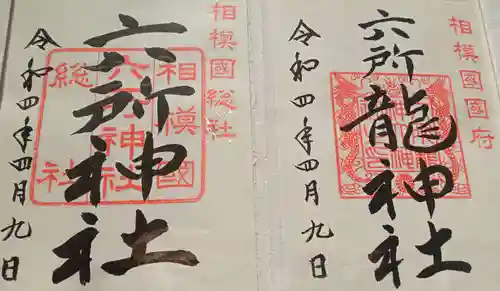 相模國國府
六所龍神社
令和四年四月九日
相模國総社
六所神社
相模國
六所神社
総社
令和四年四月九日